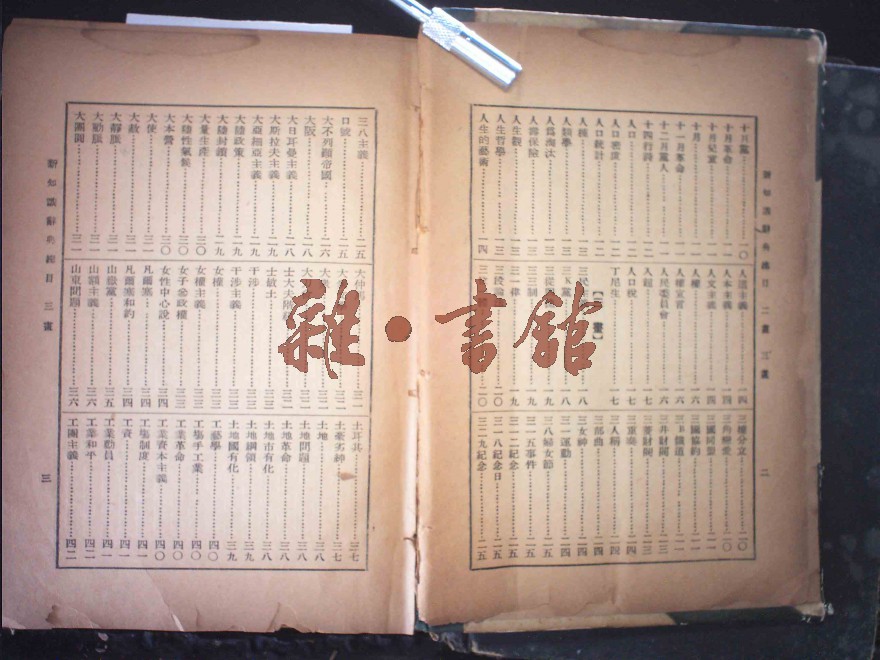 新知識辭典細目 二畫 三畫
二
十月黨……一〇
十月革命……一一
十月兒童……一一
十月……一一
十一月革命……一一
十二月黨人……一一
十四行詩……一二
人口……一二
人口密度……一二
人口統計……一二
人種……一二
人類學……一三
人為淘汰……一三
人壽保險……一三
人生觀……一三
人生哲學……一四
人生的藝術……一四
人道主義……一四
人本主義……一四
人文主義……一四
人權……一六
人權宣言……一六
人民委員會……一六
人口稅……一七
丁尼生……一七
三K黨……一八
三一律……一九
三權分立……二〇
三角戀愛……二〇
三國同盟……二一
三國協約……二一
三B鐵道……二一
三井財閥……二三
三菱財閥……二三
三重奏……二四
三人稱……二四
三部曲……二四
三女神……二四
三一運動……二四
三八婦女節……二五
三一五事件……二五
三一二紀念……二五
三一八紀念日……二五
三二九紀念……二五
新知識辭典細目 三畫
三
三八主義……二五
口號……二五
大阪……二六
大不列顛帝國……二六
大日耳曼主義……二八
大斯拉夫主義……二八
大亞細亞主義……二九
大陸政策……二九
大陸封鎖……二九
大量生產……三〇
大陸性氣候……三〇
大本營……三〇
大使……三一
大赦……三一
大靜脈……三一
大動脈……三一
大團圓……三一
士敏土……三二
干涉……三二
干涉主義……三三
女權……三三
女權主義……三三
女子參政權……三三
女性中心說……三四
凡爾塞……三四
凡爾塞和約……三四
山嶽黨……三五
山額主義……三六
山東問題……三六
土耳其……三七
土豪劣紳……三七
土地……三八
土地問題……三八
土地革命……三八
土地市有化……三八
土地綱領……三九
土地國有化……三九
工藝學……四〇
工場手工業……四〇
工業革命……四〇
工業資本主義……四〇
工場制度……四一
工資……四一
工業動員……四一
工業和平……四二
工團主義……四二
雜·書館